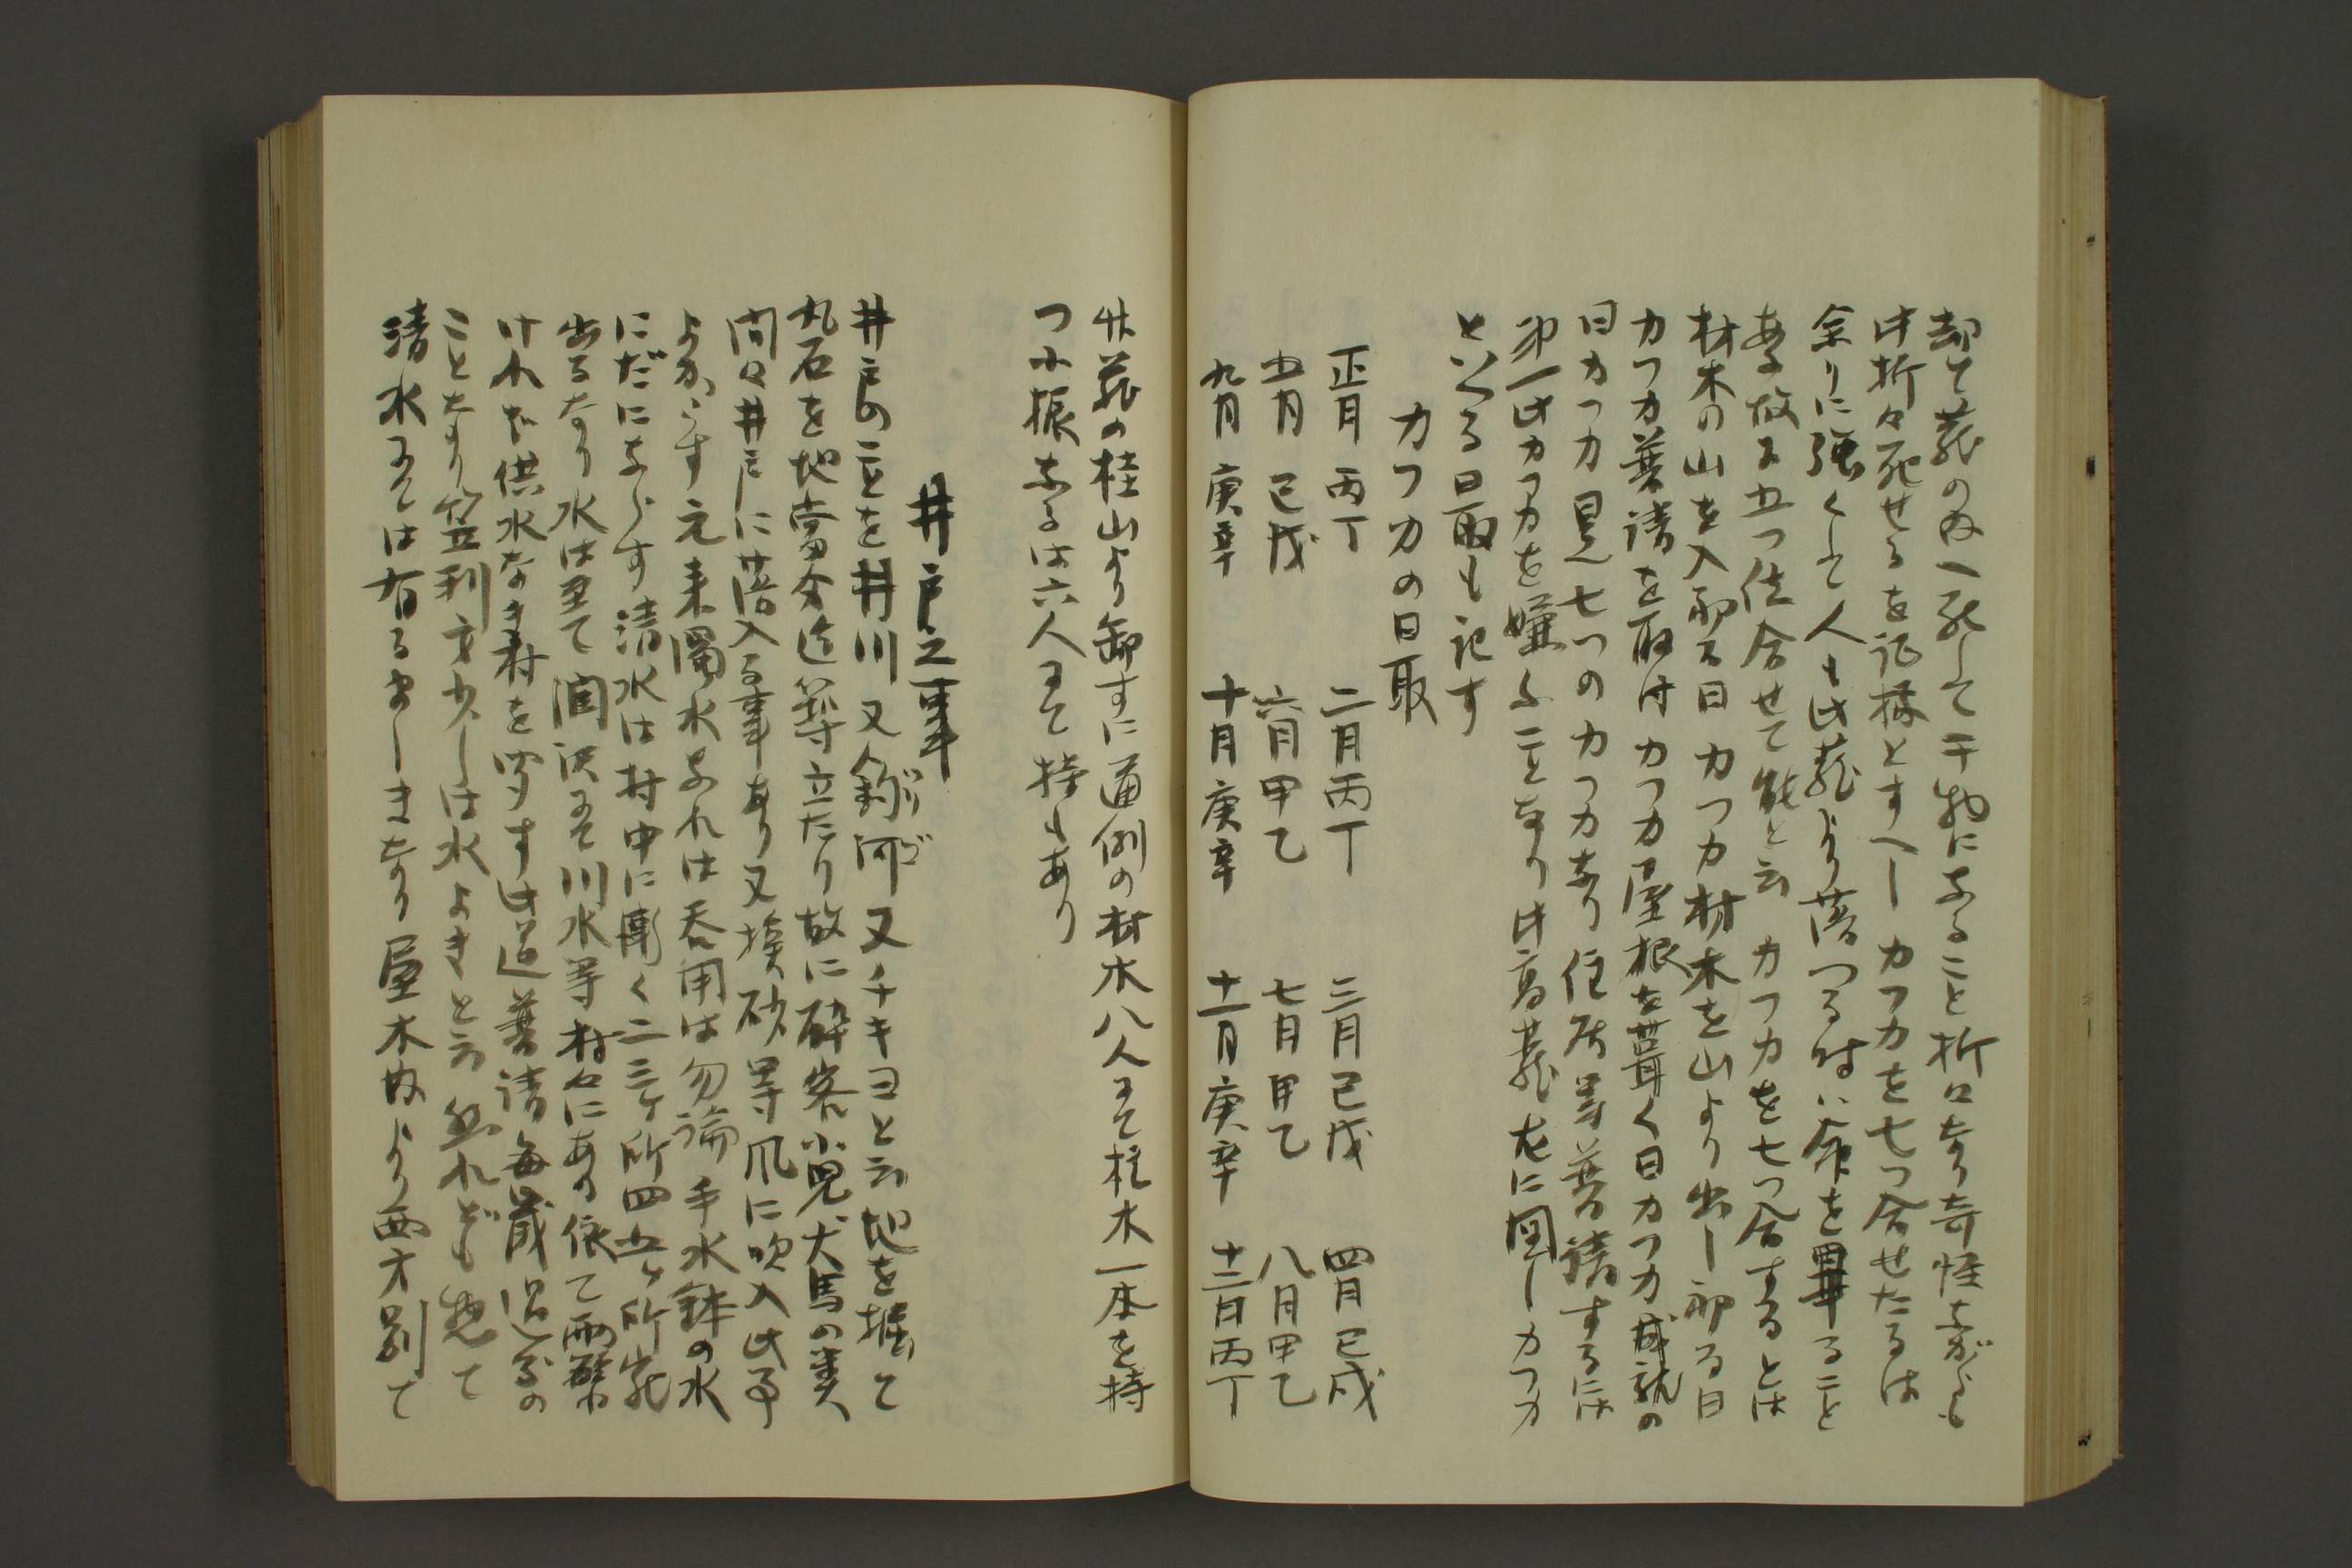 却て蔵の内へ死して干物になること折々なり奇怪ながらも
此折々死せるを証拠とすへしカツカを七つ合せたるは
余りに強くして人も此蔵より落つる時は命を畢ること
ある故に五つ位合せて能と云 カツカを七つ合するとは
材木の山を入初る日カつカ材木を山より出し初る日
カつカ普請を取付カつカ屋根を葺く日カつカ成就の
日カつカ是七つのカつカなり住居等普請するには
第一此カツカを嫌ふことなり此高蔵左に図しカツカ
といへる日取も記す
カツカの日取
正月 丙丁 二月丙丁 三月己戊 四月己戊
五月 己戊 六月甲乙 七月甲乙 八月甲乙
九月 庚辛 十月庚辛 十一月庚辛 十二月丙丁
此蔵の桂山より卸すに通例の材木八人にて柱木一本を持
つ小振なるは六人にて持もあり
井戸之事
井戸のことを井川又釣河又チキヨと云地を掘て
丸石を地当分迄築立たり故に酔客小児犬馬の類
間々井戸に落入る事あり又埃砂等風に吹入此事
よからす元来濁水なれは呑用は勿論手水鉢の水
にだにならす清水は村中に漸く二三ヶ所四五ヶ所能
出るなり水は至て 川水等村々にある依て雨繁
けれは供水なき村を聞す此道普請毎歳過分の
ことなり笠利方少しは水よきところ然れども惣て
清水にては有るましきなり屋木内より西方別て